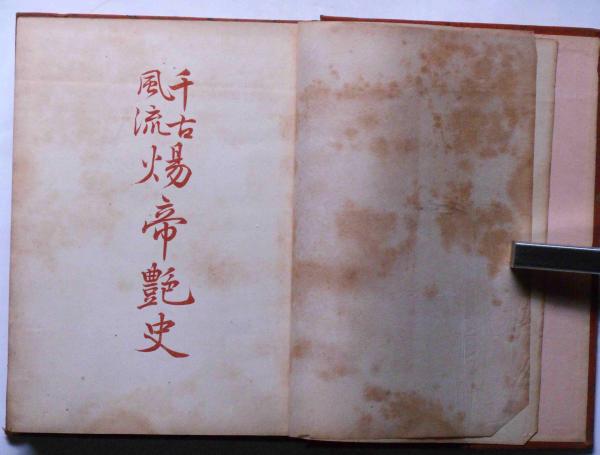 千古
風流
煬帝艶史